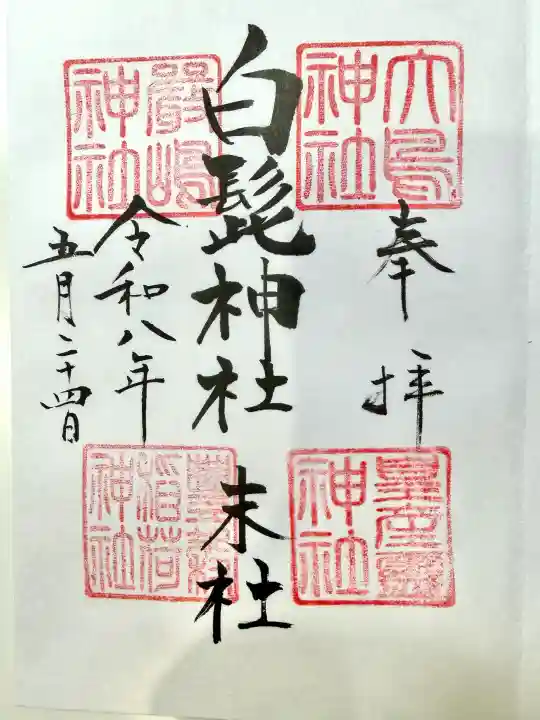 奉拝
大鳥神社
皇産霊神社
白髭神社 末社
嚴嶋神社
稲荷神社
令和八年
五月二十四日